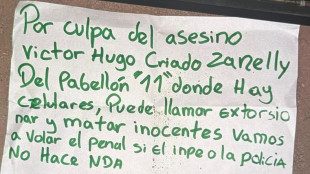 Por culpa del asesino
Victor Hugo Criado Zanelly
Del Pabellón "11" donde Hay
Celulares, Puede llamar Extorsio
nar y matar inocentes Vamos
a Volar el penal si El inpe o la policia
No Hace NDA